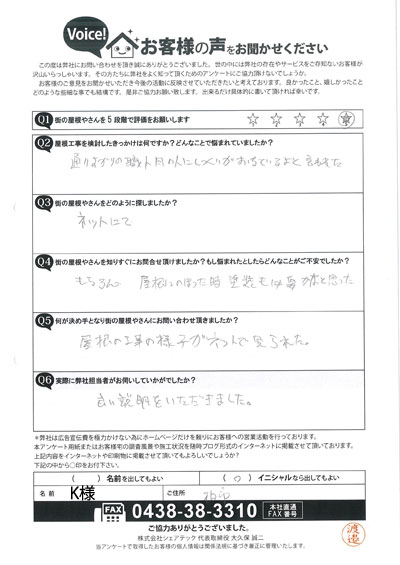 Voice!
お客様の声をお聞かせください
この度は弊社にお問い合わせを頂き誠にありがとうございました。世の中には弊社の存在やサービスをご存知ないお客様が
沢山いらっしゃいます。その方たちに弊社をよく知って頂くためのアンケートにご協力頂けないでしょうか。
お客様のご意見をお聞かせいただき今後の活動に反映させていただきたいと考えております。良かったこと、嬉しかったこと
どのような些細な事でも結構です。是非ご協力お願い致します。出来るだけ具体的に書いて頂ければ幸いです。
Q1 街の屋根やさんを5段階で評価をお願いします
☆ ☆ ☆ ☆ ☆
Q2 屋根工事を検討したきっかけは何ですか?どんなことで悩まれていましたか?
通りすがりの職人風の人にしっくいがおちているよと言われた
Q3 街の屋根やさんをどのように探しましたか?
ネットにて
Q4 街の屋根やさんを知りすぐにお問合せ頂けましたか?もし悩まれたとしたらどんなことがご不安でしたか?
もちろん 屋根にのぼった時 塗装も必要かと思った
Q5 何が決め手となり街の屋根やさんにお問い合わせ頂きましたか?
屋根の工事の様子がネットで見られた。
Q6 実際に弊社担当者がお伺いしていかがでしたか?
良い説明をいただきました。
*弊社は広告宣伝費を極力かけない為にホームページだけを頼りにお客様への営業活動を行っております。
本アンケート用紙またはお客様宅の調査風景や施工状況を随時ブログ形式のインターネットに掲載させて頂いております。
上記内容をインターネットや印刷物に掲載させて頂いてもよろしいでしょうか?
下記の中から○印をお付け下さい。
( )名前を出してもよい ( ○ )イニシャルなら出してもよい
名前 K様 ご住所
FAX 0438-38-3310 本社直通 FAX番号
ご協力ありがとうございました。
株式会社シェアテック 代表取締役 大久保 誠二
当アンケートで取得したお客様の個人情報は関係法規に基づき厳正に管理いたします。
渡邉